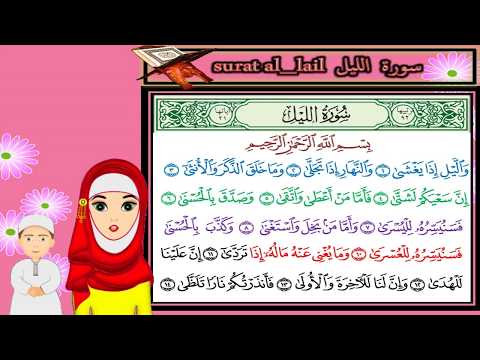 surat al_lail سورة الليل
سُورَةُ اللَّيْلِ
بِسْمِ اللَّهِ الرَّحْمَٰنِ الرَّحِيمِ
وَالَّيْلِ إِذَا يَغْشَىٰ ١ وَالنَّهَارِ إِذَا تَجَلَّىٰ ٢ وَمَا خَلَقَ الذَّكَرَ وَالْأُنثَىٰ ٣
إِنَّ سَعْيَكُمْ لَشَتَّىٰ ٤ فَأَمَّا مَنْ أَعْطَىٰ وَاتَّقَىٰ ٥ وَصَدَّقَ بِالْحُسْنَىٰ ٦
فَسَنُيَسِّرُهُ لِلْيُسْرَىٰ ٧ وَأَمَّا مَن بَخِلَ وَاسْتَغْنَىٰ ٨ وَكَذَّبَ بِالْحُسْنَىٰ ٩
فَسَنُيَسِّرُهُ لِلْعُسْرَىٰ ١٠ وَمَا يُغْنِي عَنْهُ مَالُهُ إِذَا تَرَدَّىٰ ١١ إِنَّ عَلَيْنَا
لَلْهُدَىٰ ١٢ وَإِنَّ لَنَا لَلْآخِرَةَ وَالْأُولَىٰ ١٣ فَأَنذَرْتُكُمْ نَارًا تَلَظَّىٰ ١٤